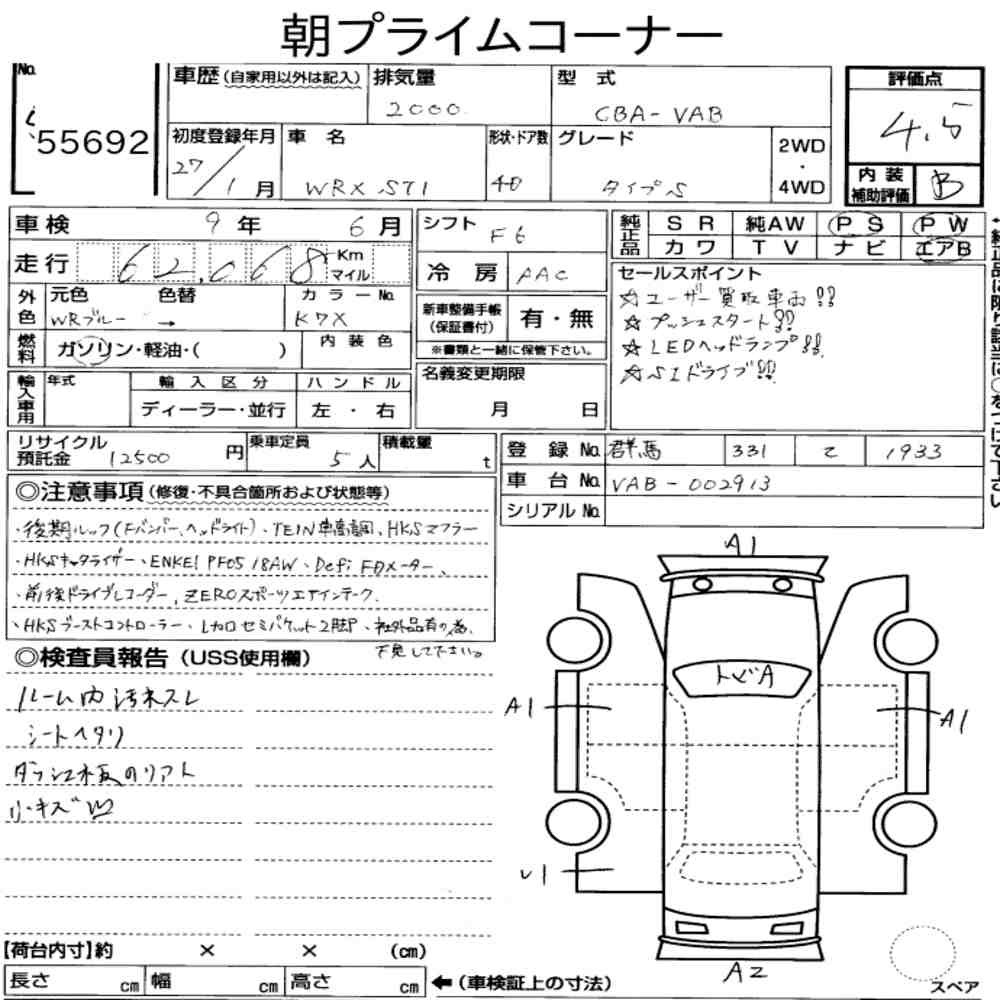 朝プライムコーナー
No. 55692
車歴(自家用以外は記入) 排気量 2000 型式 CBA-VAB
初度登録年月 27/1月 車名 WRX STI 形状・ドア数 4D グレード タイプS 2WD・4WD
評価点 4.5
内装補助評価 B
車検 9年 6月 シフト F6
純正品 SR 純AW PS PW カワ TV ナビ エアB
走行 62,068 Km マイル 冷房 AAC
外色 元色 WRブルー 色替 → カラーNo. K7X
新車整備手帳(保証書付) 有・無
※書類と一緒に保管下さい。
燃料 ガソリン・軽油・( ) 内装色
セールスポイント
☆ユーザー買取車両!!
☆プッシュスタート!!
☆LEDヘッドランプ!!
☆SIドライブ!!
輸入車用 年式 輸入区分 ディーラー・並行 ハンドル 左・右
名義変更期限 月 日
リサイクル預託金 12500円 乗車定員 5人 積載量 t
登録No. 群馬 331 そ 1933
車台No. VAB-002913
シリアルNo.
◎注意事項(修復・不具合箇所および状態等)
・後期ルック(Fバンパー、ヘッドライト)、TEIN車高調、HKSマフラー
・HKSキャタライザー、ENKEI PF05 18AW、Defi FDメーター、
・前後ドライブレコーダー、ZEROスポーツエアインテーク、
・HKSブーストコントローラー、レカロセミバケット2脚、社外品有の為、
下見して下さい。
◎検査員報告(USS使用欄)
ルーム内汚れスレ
シートヘタリ
ダッシュ板のリフト
小キズ凹
A1
トビA
A1
A1
U1
A2
【荷台内寸】約 × × (cm)
長さ cm 幅 cm 高さ cm ←(車検証上の寸法)
スペア